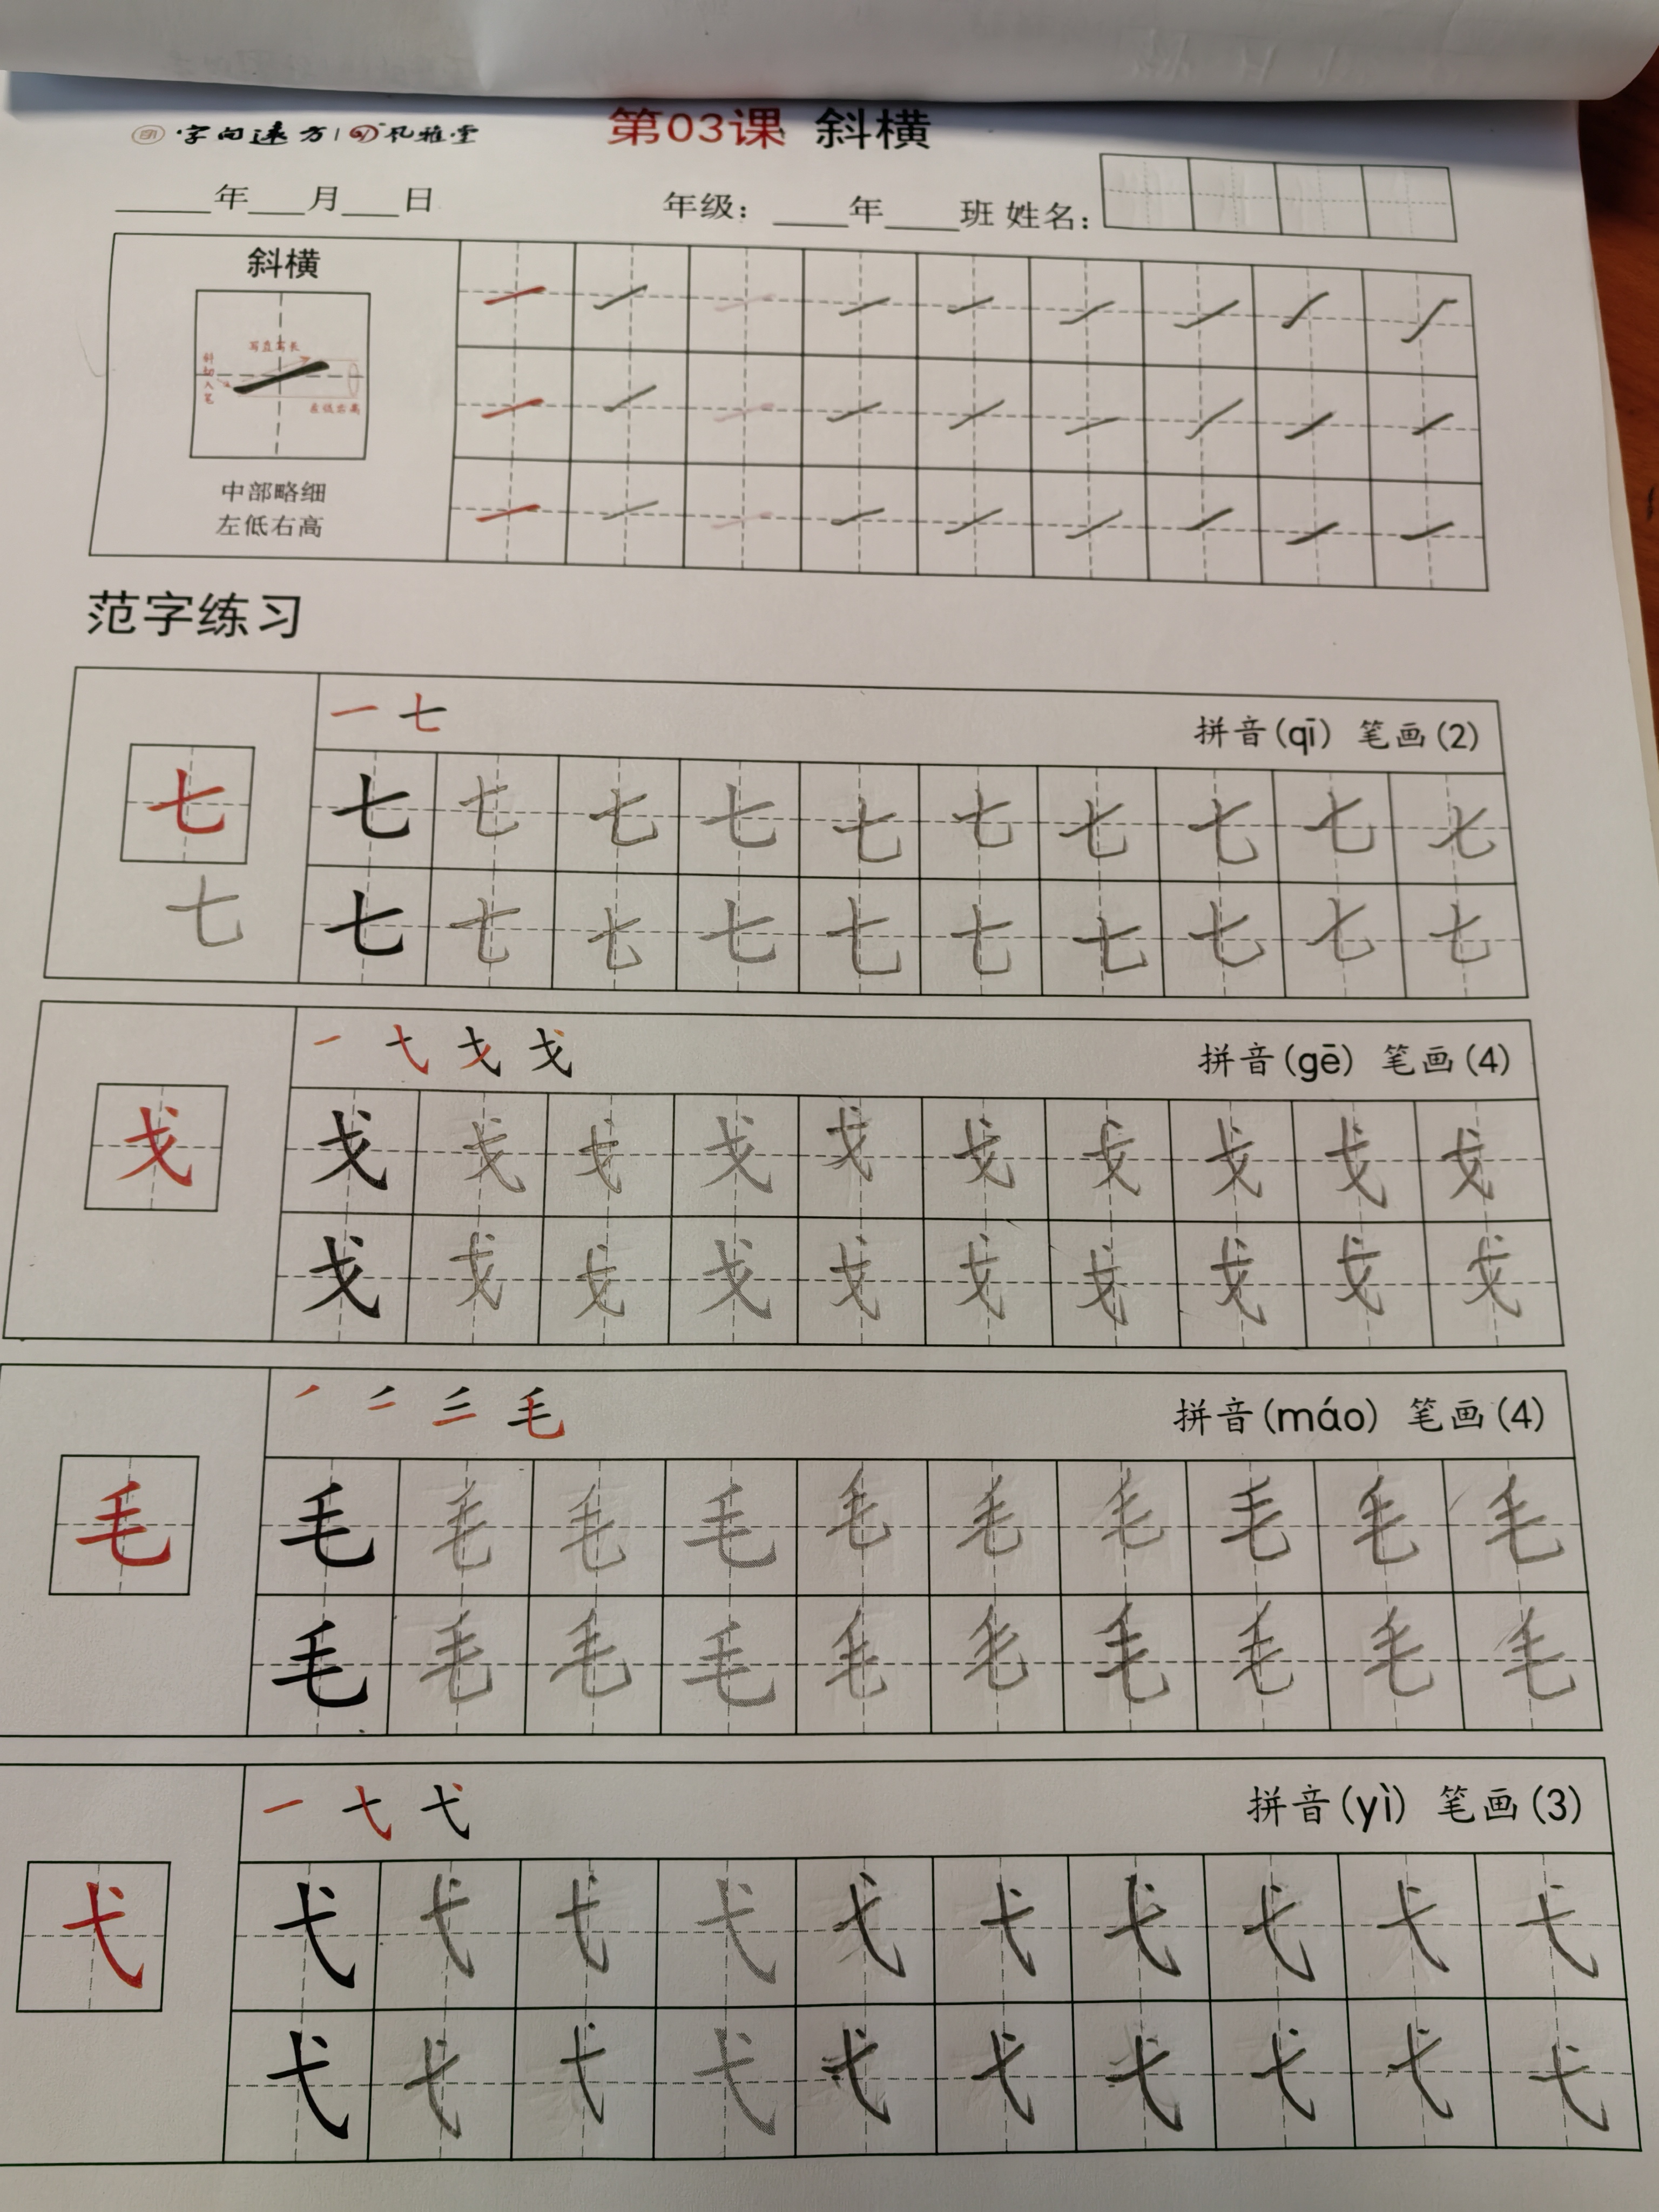 字向速方 | 风雅堂 第03课 斜横
年 月 日 年级： 年 班 姓名：
斜横
写直写长
斜切入笔
左低右高
中部略细
左低右高
范字练习
一 七 拼音(qī) 笔画(2)
七 七 七 七 七 七 七 七 七 七 七
七 七 七 七 七 七 七 七 七 七 七
戈 拼音(gē) 笔画(4)
戈 戈 戈 戈 戈 戈 戈 戈 戈 戈 戈
戈 戈 戈 戈 戈 戈 戈 戈 戈 戈
毛 拼音(máo) 笔画(4)
毛 毛 毛 毛 毛 毛 毛 毛 毛 毛 毛
毛 毛 毛 毛 毛 毛 毛 毛 毛 毛
一 弋 拼音(yì) 笔画(3)
弋 弋 弋 弋 弋 弋 弋 弋 弋 弋 弋
弋 弋 弋 弋 弋 弋 弋 弋 弋 弋